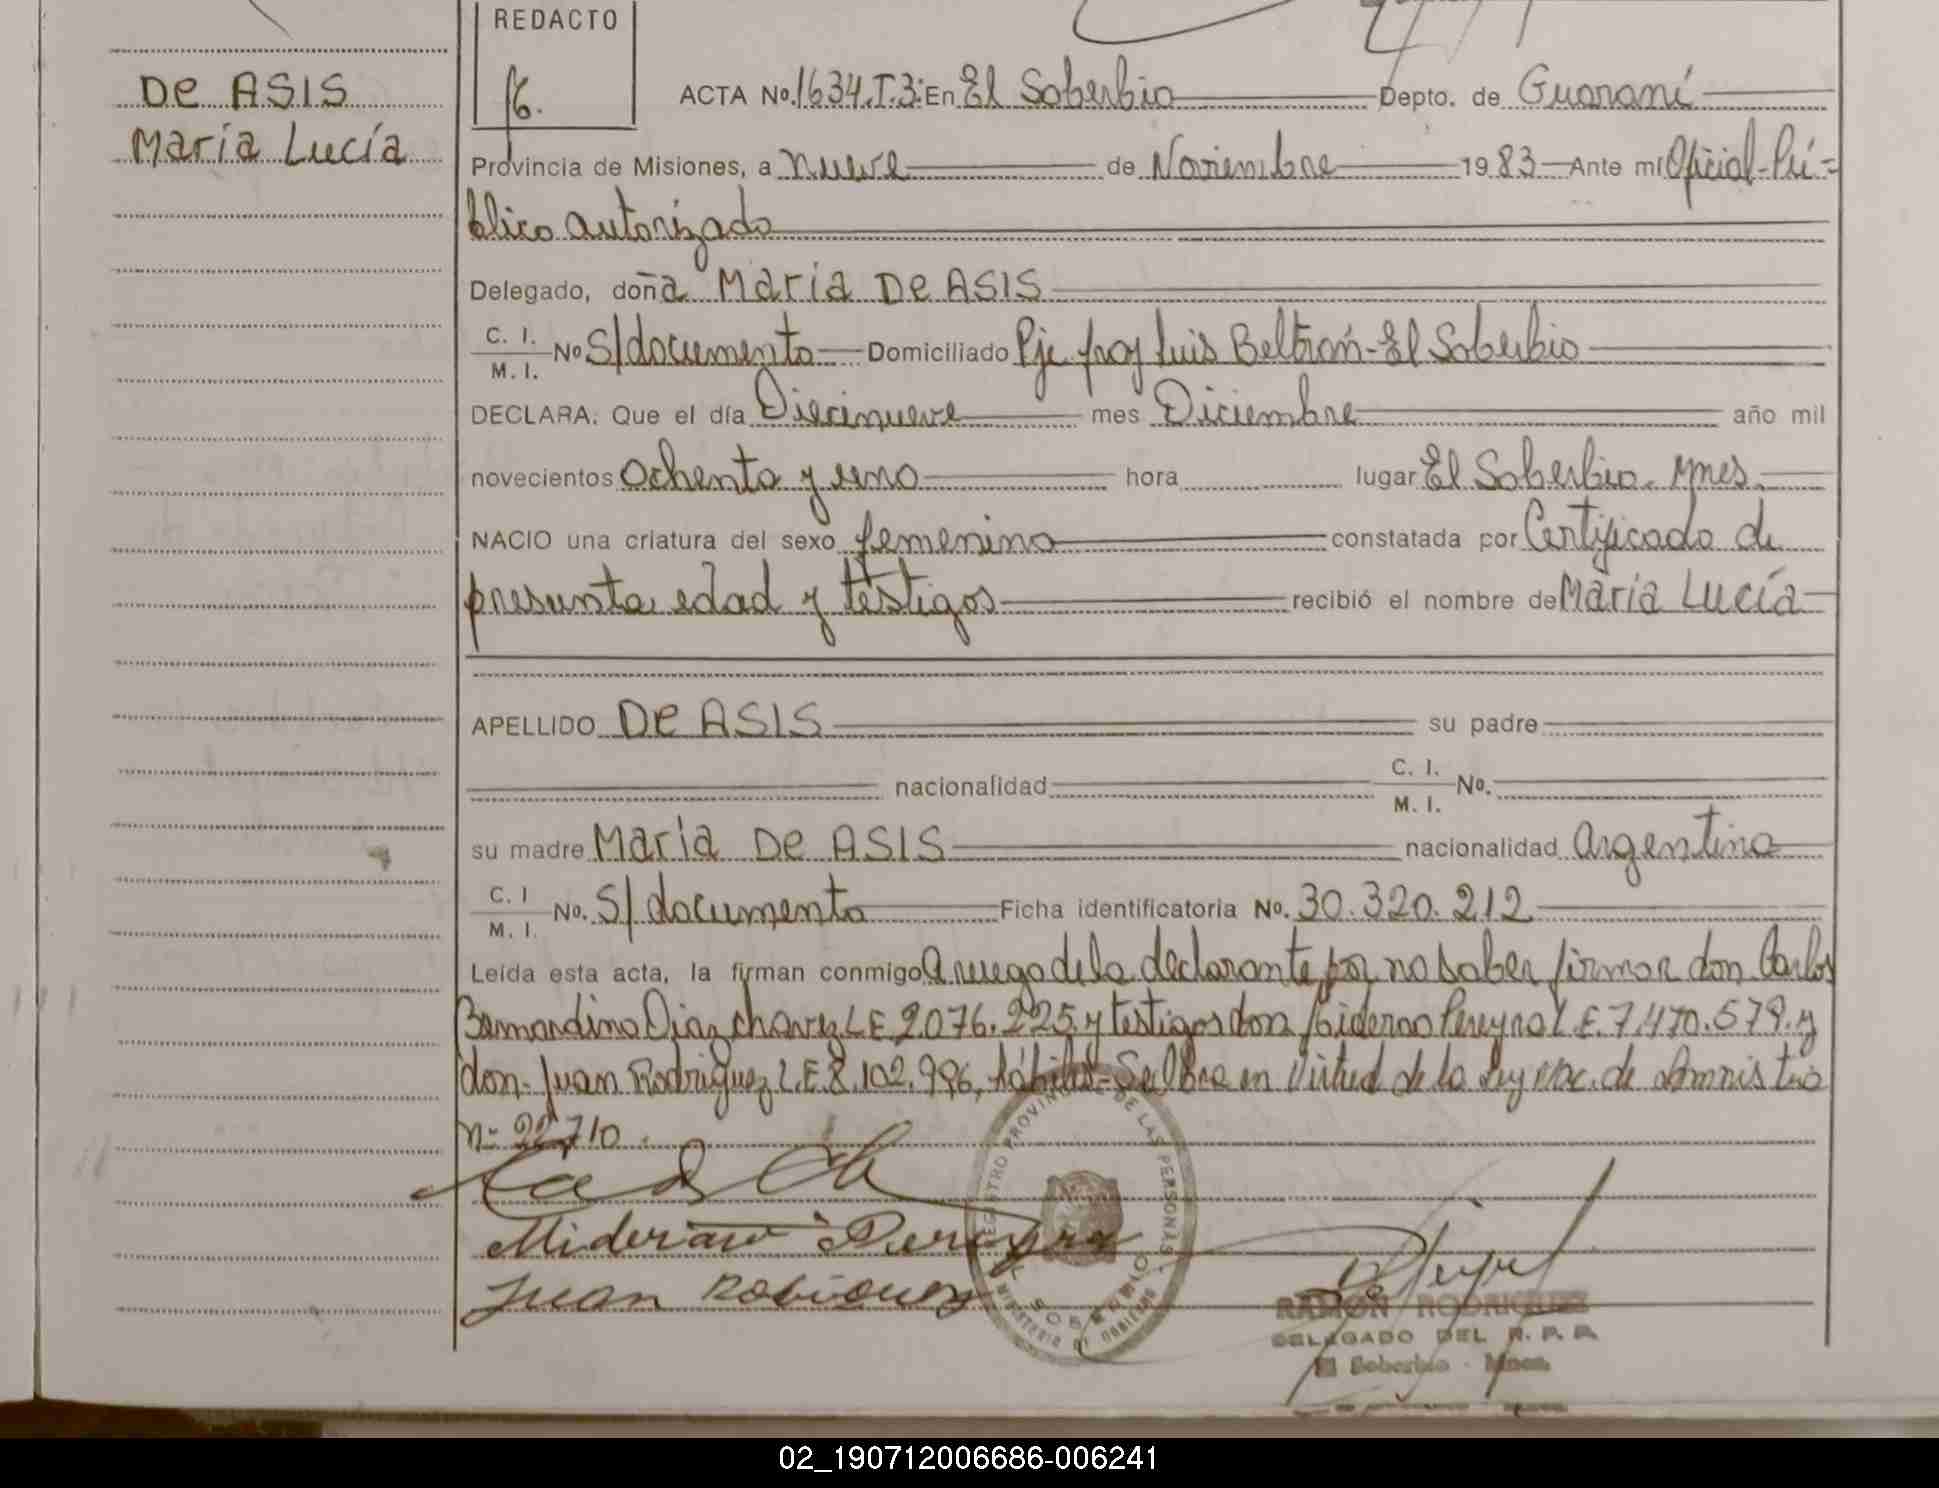 REDACTO
De ASIS
María Lucía
ACTA No. 1634.T.3: En El Soberbio Depto. de Guaraní
Provincia de Misiones, a nueve de Noviembre 1983 Ante mí Oficial-Pú=
blico autorizado
Delegado, doña María De ASIS
C. I.
M. I. No S/documento Domiciliado Pje. fray Luis Beltrán-El Soberbio
DECLARA: Que el día Diecinueve mes Diciembre año mil
novecientos Ochenta y uno hora lugar El Soberbio. Mnes.
NACIO una criatura del sexo femenino constatada por Certificado de
presunta edad y testigos recibió el nombre de María Lucía
APELLIDO De ASIS su padre
nacionalidad C. I.
M. I. No.
su madre María De ASIS nacionalidad Argentina
C. I
M. I. No. S/documento Ficha identificatoria No. 30.320.212
Leída esta acta, la firman conmigo A ruego de la declarante por no saber firmar don Carlos
Bernardino Diaz chavez L.E 2.076.225 y testigos don Miderao Pereyra L.E. 7.470.579. y
don-Juan Rodriguez L.E 8.102.996, hábiles- Se labra en Virtud de la Ley nac. de Amnistia
n= 22.710.
Pereyra
Juan Rodriguez
REGISTRO PROVINCIAL DE LAS PERSONAS
EL SOBERBIO
MINISTERIO DE GOBIERNO
RAMON RODRIGUEZ
DELEGADO DEL R. P. P.
El Soberbio - Mnes.
02_190712006686-006241